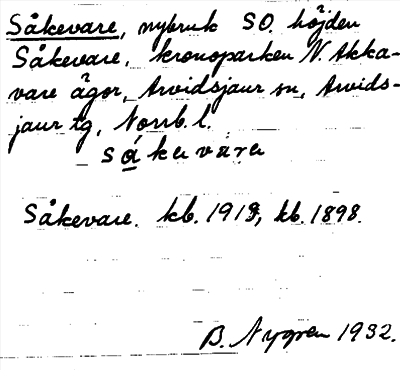 Såkevare, nybruk SO. höjden
Såkevare, kronoparken N. Akka-
vare ägor, Arvidsjaur sn, Arvids-
jaur tg, Norrb. l.
såkevare
Såkevare. kb. 1918, kb. 1898.
B. Nygren 1932.